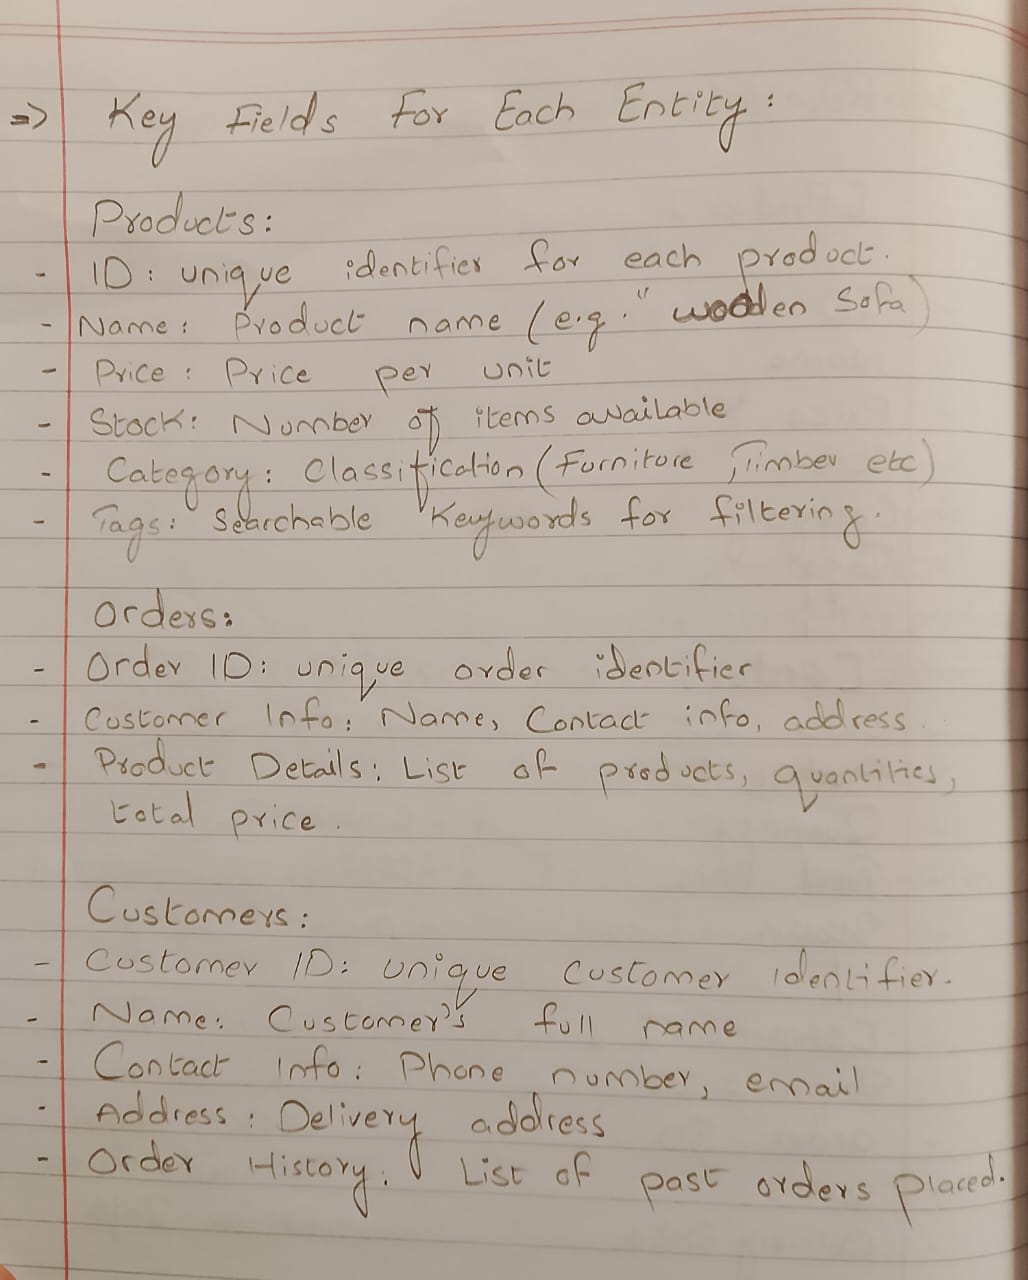 => Key Fields For Each Entity:
Products:
- ID: unique identifier for each product.
- Name: Product name (e.g. "wooden Sofa)
- Price: Price per unit
- Stock: Number of items available
- Category: Classification (Furniture, Timber etc)
- Tags: Searchable Keywords for filtering.
Orders:
- Order ID: unique order identifier
- Customer Info: Name, Contact info, address.
- Product Details: List of products, quantities,
total price.
Customers:
- Customer ID: unique customer identifier.
- Name: Customer's full name
- Contact Info: Phone number, email
- Address: Delivery address
- Order History: List of past orders placed.